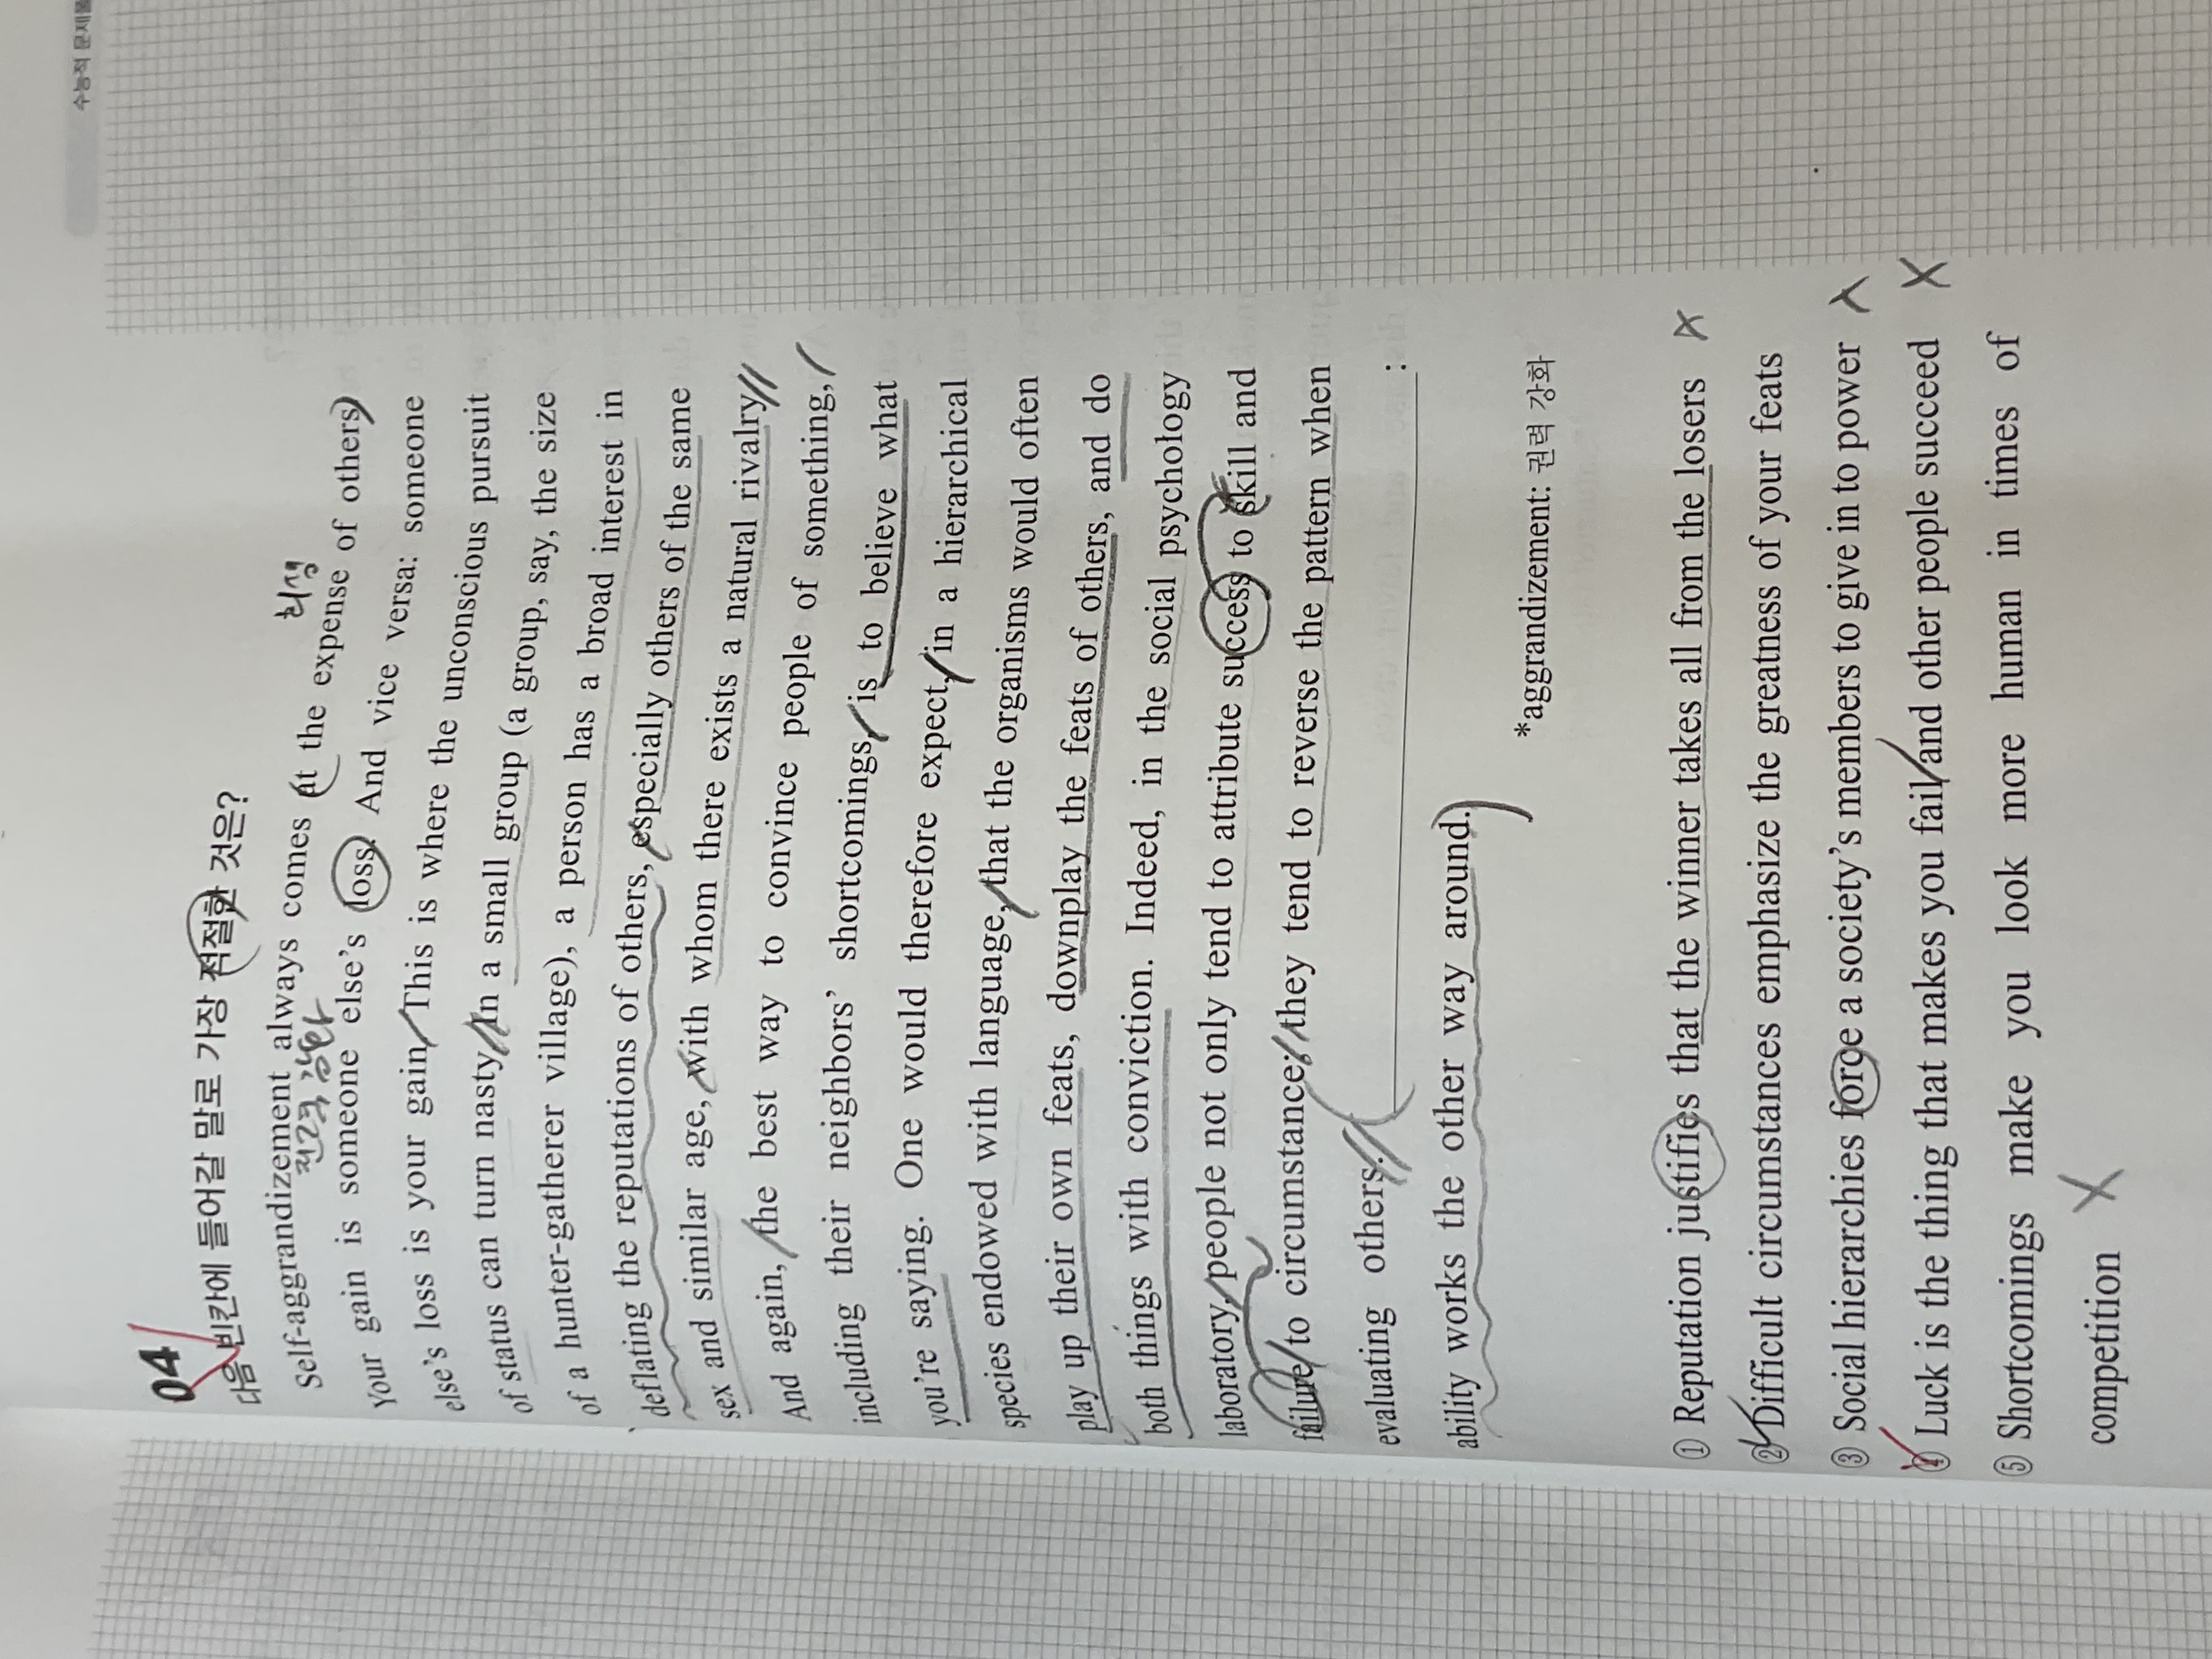 수능적 문제풀
04
다음 빈칸에 들어갈 말로 가장 적절한 것은?
희생
Self-aggrandizement always comes at the expense of others.
권력 강화
Your gain is someone else's loss. And vice versa: someone
else's loss is your gain. This is where the unconscious pursuit
of status can turn nasty. In a small group (a group, say, the size
of a hunter-gatherer village), a person has a broad interest in
deflating the reputations of others, especially others of the same
sex and similar age, with whom there exists a natural rivalry.
And again, the best way to convince people of something,
including their neighbors' shortcomings, is to believe what
you're saying. One would therefore expect, in a hierarchical
species endowed with language, that the organisms would often
play up their own feats, downplay the feats of others, and do
both things with conviction. Indeed, in the social psychology
laboratory, people not only tend to attribute success to skill and
failure to circumstance; they tend to reverse the pattern when
evaluating others. :
ability works the other way around.
*aggrandizement: 권력 강화
① Reputation justifies that the winner takes all from the losers
② Difficult circumstances emphasize the greatness of your feats
③ Social hierarchies force a society's members to give in to power
④ Luck is the thing that makes you fail and other people succeed
⑤ Shortcomings make you look more human in times of
competition